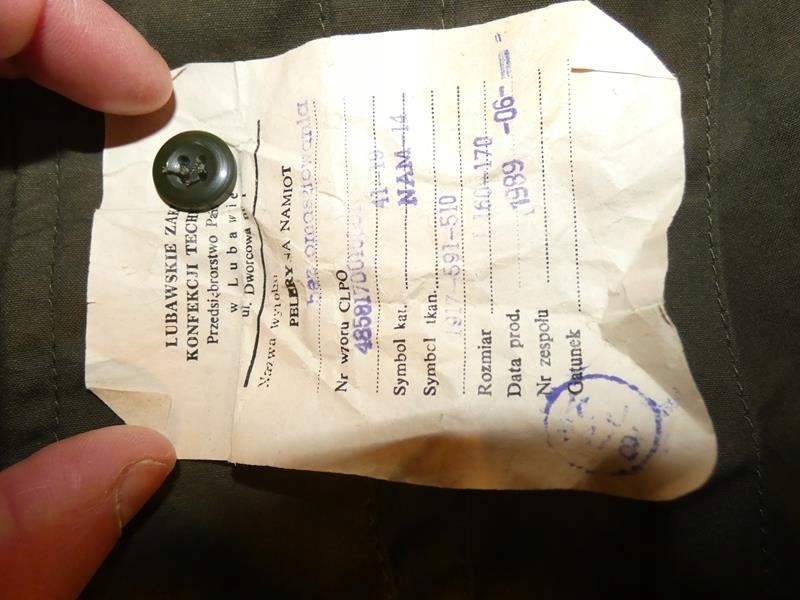 LUBAWSKIE
KONFEKCJI
Przedsiębiorstwo
w Lubawie
ul. Dworcowa
Nazwa wyrobu
PELERYNA NAMIOT
bez omaskowania
Nr wzoru CLPO
41-19
Symbol kat. NAM-14
Symbol tkan. 1917-591-510
Rozmiar 160-170
Data prod. 1989 -06-
Nr zespołu
Gatunek